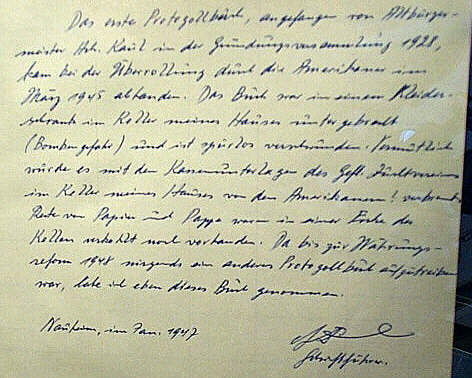 Das erste Protogollbuch, angefangen von Altbürger-
meister Hch. Kaul in der Gründungsversammlung 1928,
kam bei der Überrollung durch die Amerikaner im
März 1945 abhanden. Das Buch war in einem Kleider-
schrank im Keller meines Hauses untergebracht
(Bombengefahr) und ist spurlos verschwunden. Vermutlich
wurde es mit den Kassenunterlagen des Gefl. Zuchtvereins
im Keller meines Hauses von den Amerikanern! verbrannt
Reste von Papier und Pappe waren in einer Ecke des
Kellers verkohlt noch vorhanden. Da bis zur Währungs-
reform 1948 nirgends ein anderes Protogollbuch aufzutreiben
war, habe ich eben dieses Buch genommen.
Nauheim, im Jan. 1947
Schriftführer.